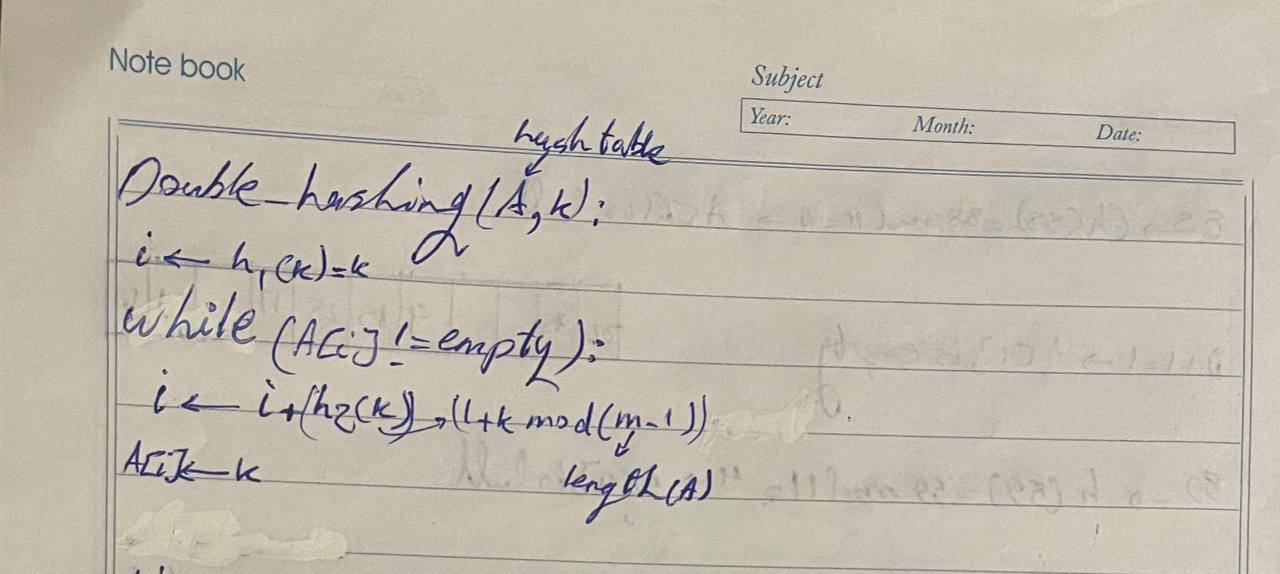 Note book
Subject
Year: Month: Date:
hash table
Double_hashing(A,k):
i ← h₁(k)=k
while (A[i] != empty):
i ← i+(h2(k)) → (1+k mod(m-1))
length(A)
A[i] ← k